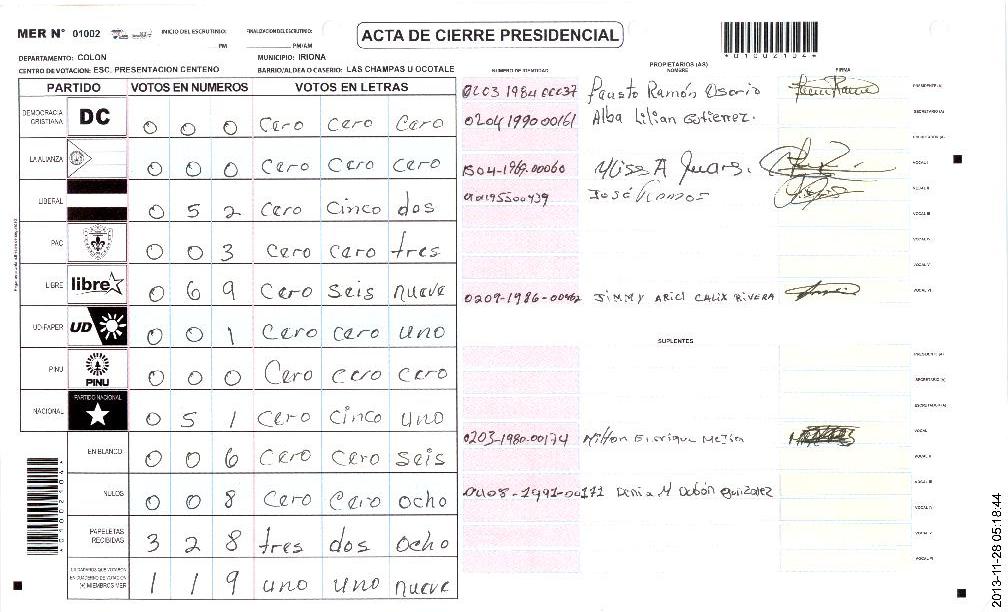 MER N° 01002 INICIO DEL ESCRUTINIO: PM FINALIZACION DEL ESCRUTINIO: PM/AM
ACTA DE CIERRE PRESIDENCIAL
*01002104*
DEPARTAMENTO: COLON MUNICIPIO: IRIONA
CENTRO DE VOTACION: ESC. PRESENTACION CENTENO BARRIO/ALDEA O CASERIO: LAS CHAMPAS U OCOTALE
PARTIDO VOTOS EN NUMEROS VOTOS EN LETRAS
DEMOCRACIA CRISTIANA DC 0 0 0 Cero Cero Cero
LA ALIANZA 0 0 0 Cero Cero Cero
LIBERAL 0 5 2 Cero Cinco dos
PAC 0 0 3 Cero Cero tres
LIBRE libre 0 6 9 Cero Seis nueve
UD-FAPER UD 0 0 1 Cero cero uno
PINU PINU 0 0 0 Cero cero cero
NACIONAL PARTIDO NACIONAL 0 5 1 Cero Cinco uno
EN BLANCO 0 0 6 Cero Cero Seis
NULOS 0 0 8 Cero Cero ocho
PAPELETAS RECIBIDAS 3 2 8 tres dos ocho
CIUDADANOS QUE VOTARON EN CUADERNO DE VOTACION (+) MIEMBROS MER 1 1 9 uno uno nueve
PROPIETARIOS (AS)
NUMERO DE IDENTIDAD NOMBRE FIRMA
0203 1984 00037 Fausto Ramón Osorio PRESIDENTE (A)
0204 1990 00161 Alba Lilian Gutierrez. SECRETARIO (A)
ESCRUTADOR (A)
1504-1969-00060 VOCAL I
José VOCAL II
VOCAL III
VOCAL IV
VOCAL V
0209-1986-00462 JIMMY ARIEL CALIX RIVERA VOCAL VI
SUPLENTES
PRESIDENTE (A)
SECRETARIO (A)
ESCRUTADOR (A)
0203-1980-00174 Milton Enrique Mejia VOCAL I
VOCAL II
0408-1991-00171 Denia M Dubón gonzalez VOCAL III
VOCAL IV
VOCAL V
VOCAL VI
*01002104*
2013-11-28 05:18:44